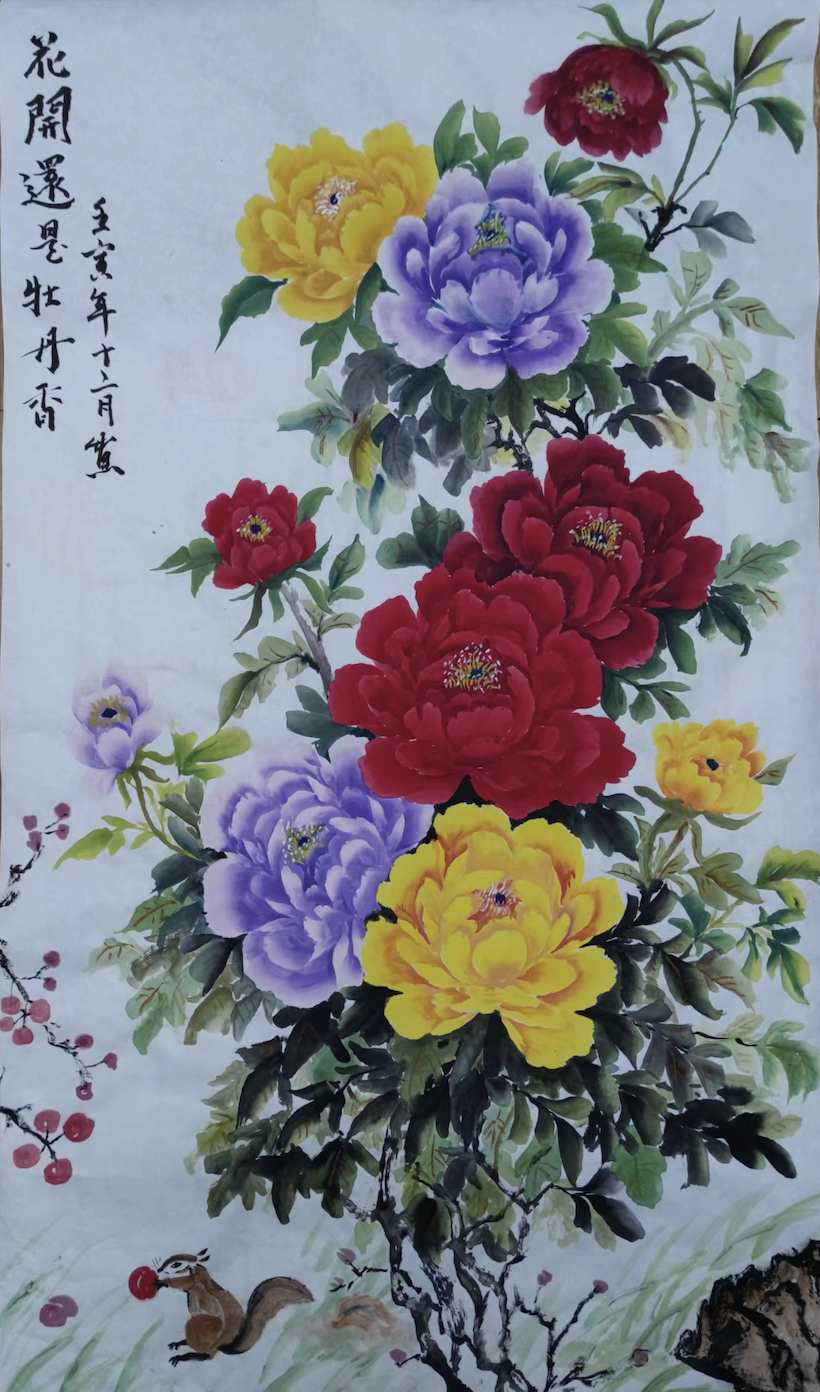 花開還是牡丹香
壬寅年十二月